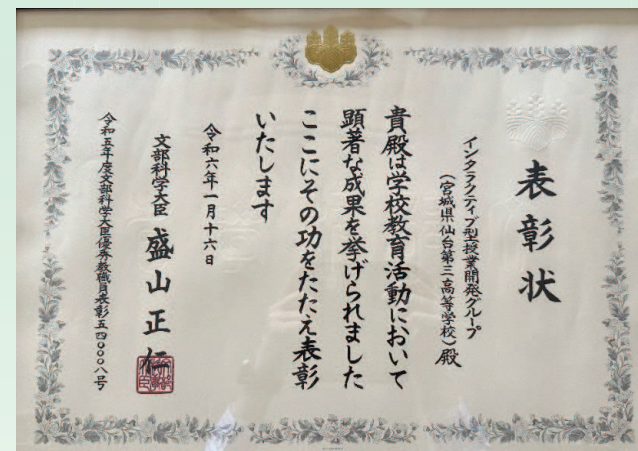 表彰状
インタラクティブ型授業開発グループ
(宮城県仙台第三高等学校)殿
貴殿は学校教育活動において
顕著な成果を挙げられました
ここにその功をたたえ表彰
いたします
令和六年一月十六日
文部科学大臣 盛山正仁
令和五年度文部科学大臣優秀教職員表彰五四〇〇〇八号